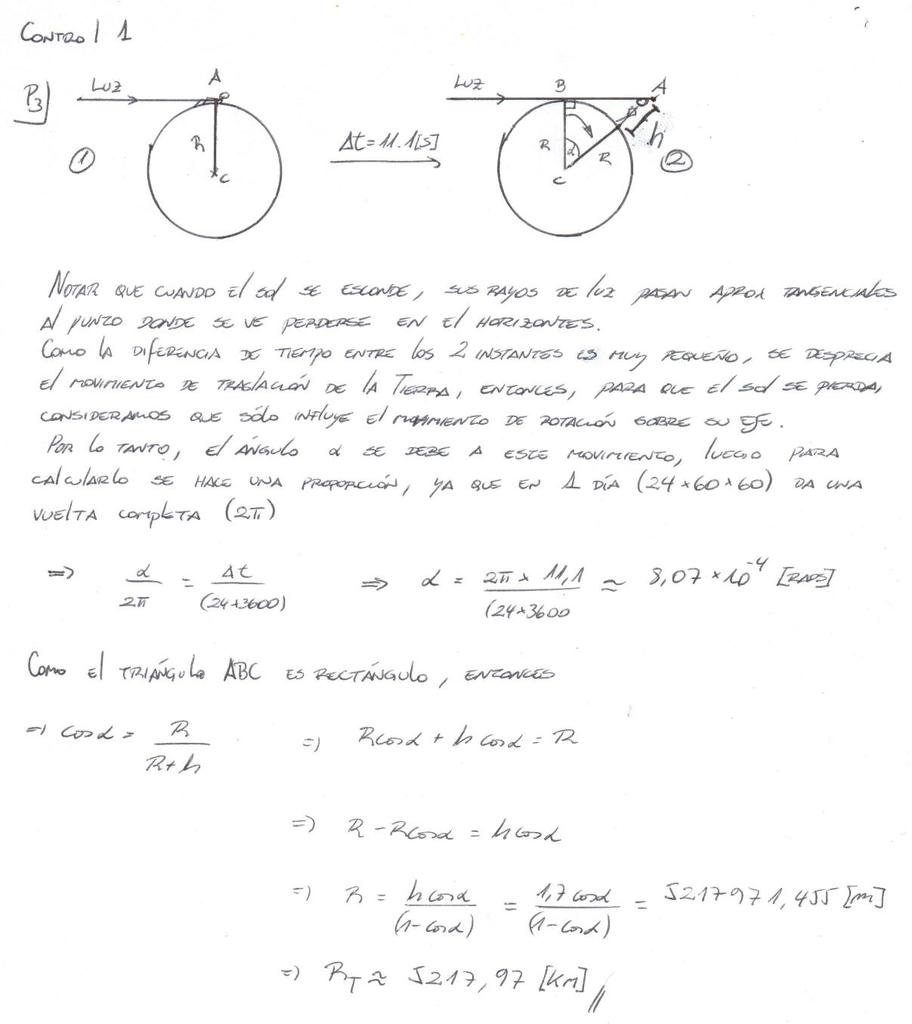 CONTROL 1
P3)
LUZ
A
R
C
①
Δt = 11.1 [s]
LUZ
B
A
R
α
R
h
C
②
NOTAR QUE CUANDO El sol SE ESCONDE, SUS RAYOS DE luz PASAN APROX TANGENCIALES
Al PUNTO DONDE SE VE PERDERSE EN El HORIZONTES.
COMO lA DIFERENCIA DE TIEMPO ENTRE lOS 2 INSTANTES ES MUY PEQUEÑO, SE DESPRECIA
El MOVIMIENTO DE TRASlACIÓN DE lA TIERRA, ENTONCES, PARA QUE El sol SE PIERDA,
CONSIDERAMOS QUE SÓlO INFlUYE El MOVIMIENTO DE ROTACIÓN SOBRE SU EJE.
POR lO TANTO, El ÁNGULO α SE DEBE A ESTE MOVIMIENTO, lUEGO PARA
CAlCUlARlO SE HACE UNA PROPORCIÓN, YA QUE EN 1 DÍA (24×60×60) DA UNA
VUElTA COMPlETA (2π)
⇒ α/2π = Δt/(24×3600) ⇒ α = 2π × 11,1/(24×3600 ≃ 8,07 × 10⁻⁴ [RADS]
COMO El TRIÁNGUlO ABC ES RECTÁNGUlO, ENTONCES
⇒ cosα = R/R+h ⇒ Rcosα + h cosα = R
⇒ R - Rcosα = h cosα
⇒ R = h cosα/(1-cosα) = 1,7 cosα/(1-cosα) = 5217971,455 [m]
⇒ R_T ≈ 5217,97 [KM] //